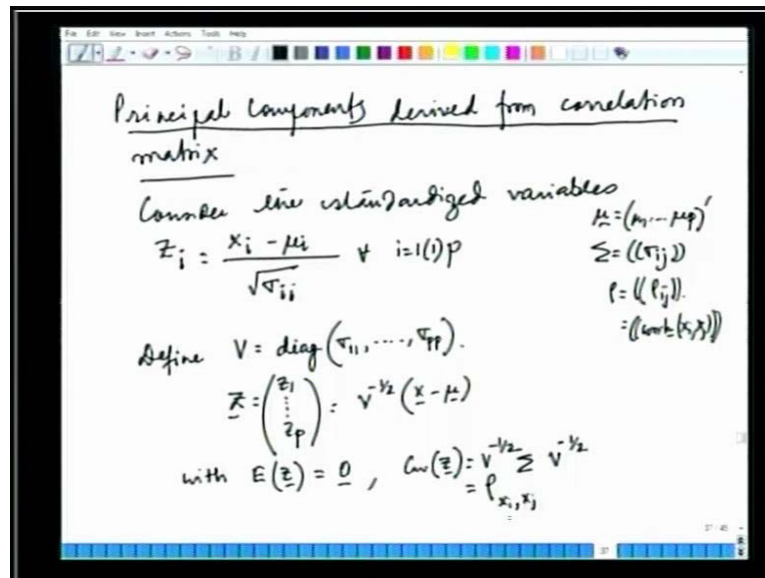 File Edit View Insert Actions Tools Help
Principal Components derived from correlation
matrix
Consider the standardized variables
Z_i = (x_i - μ_i) / √σ_ii ∀ i=1(1)p
μ = (μ_1 ... μ_p)'
Σ = ((σ_ij))
ρ = ((ρ_ij)).
= ((corr(x_i, x_j)))
Define V = diag(σ_11, ....., σ_pp).
Z = (z_1 ⋮ z_p) = V^(-1/2) (x - μ)
with E(Z) = 0, Cov(Z) = V^(-1/2) Σ V^(-1/2)
= ρ_x_i,x_j
37 / 45
37